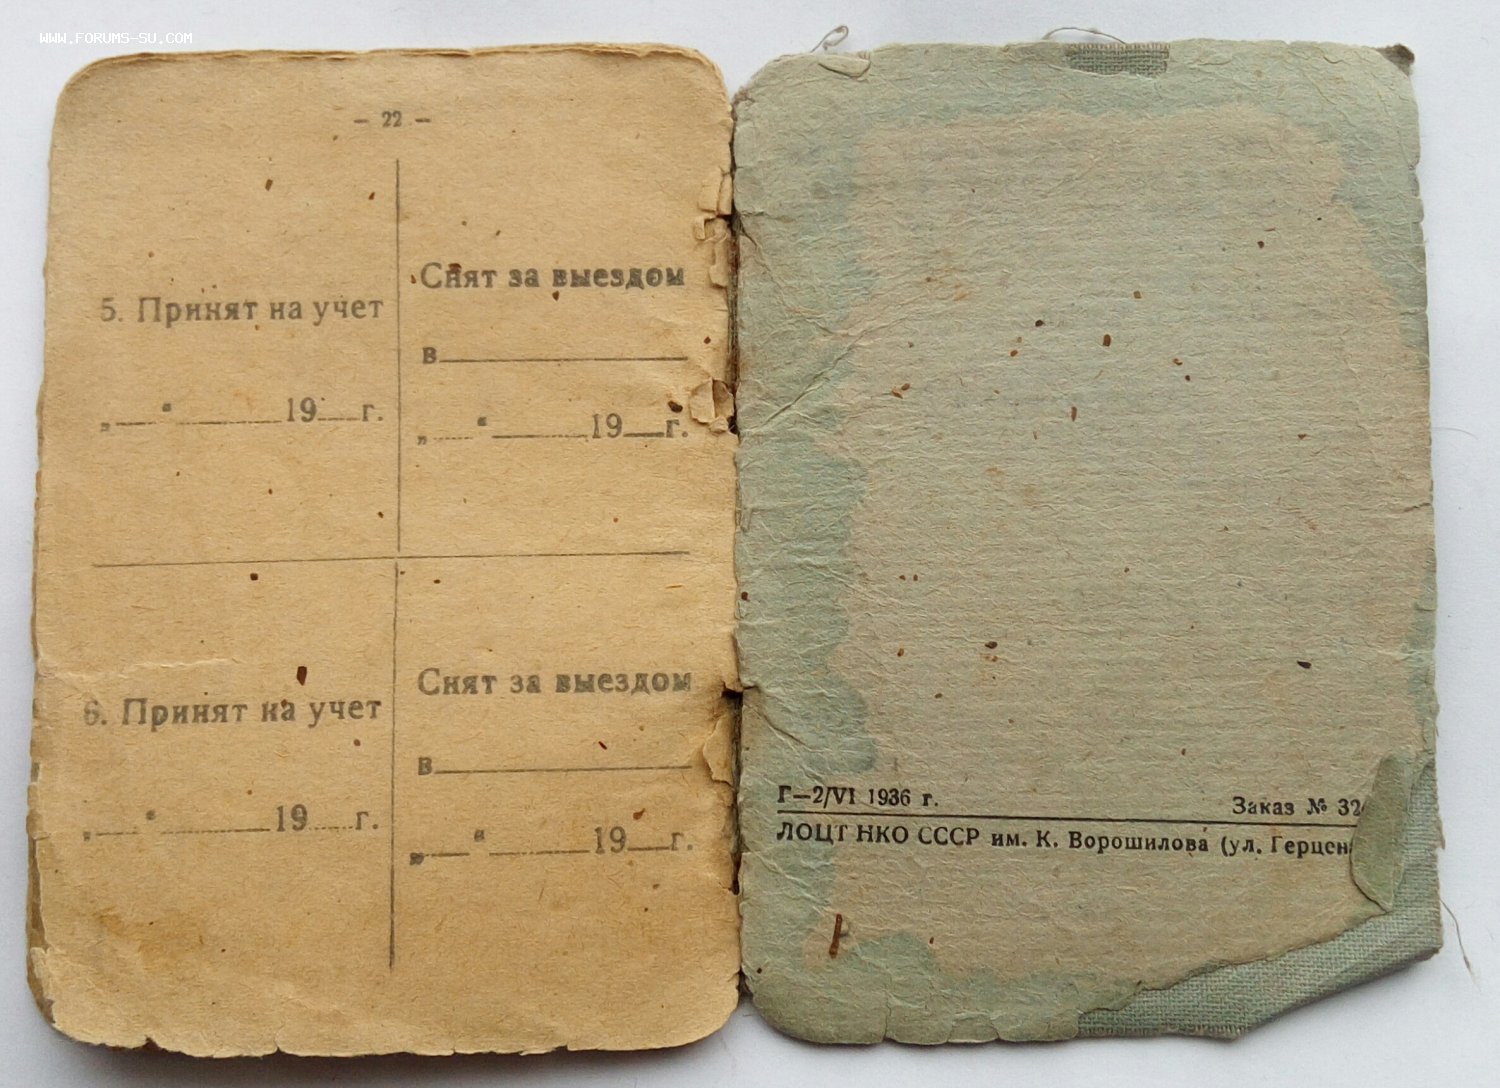 WWW.FORUMS-SU.COM
— 22 —
5. Принят на учет
„___“________19___г.
Снят за выездом
в________________
„___“________19___г.
6. Принят на учет
„___“________19___г.
Снят за выездом
в________________
„___“________19___г.
Г—2/VI 1936 г.
Заказ №
ЛОЦТ НКО СССР им. К. Ворошилова (ул.